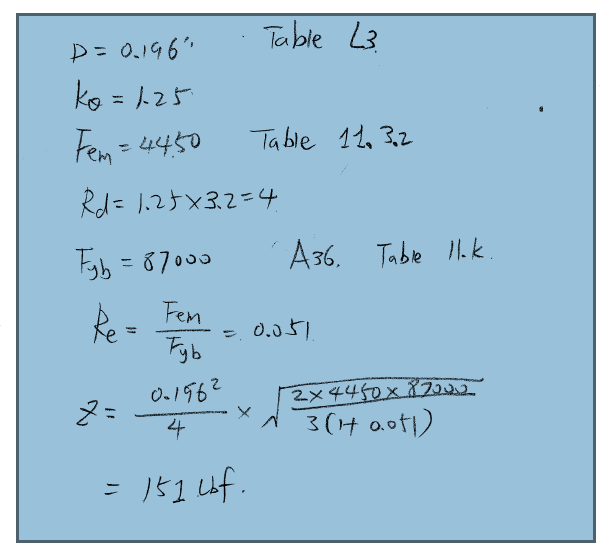 D = 0.196" Table L3
kθ = 1.25
Fem = 4450 Table 11.3.2
Rd = 1.25×3.2=4
Fyb = 87000 A36. Table 11.k.
Re = Fem/Fyb = 0.051
Z = 0.196²/4 × √(2×4450×87000/3(1+0.051))
= 151 lbf.